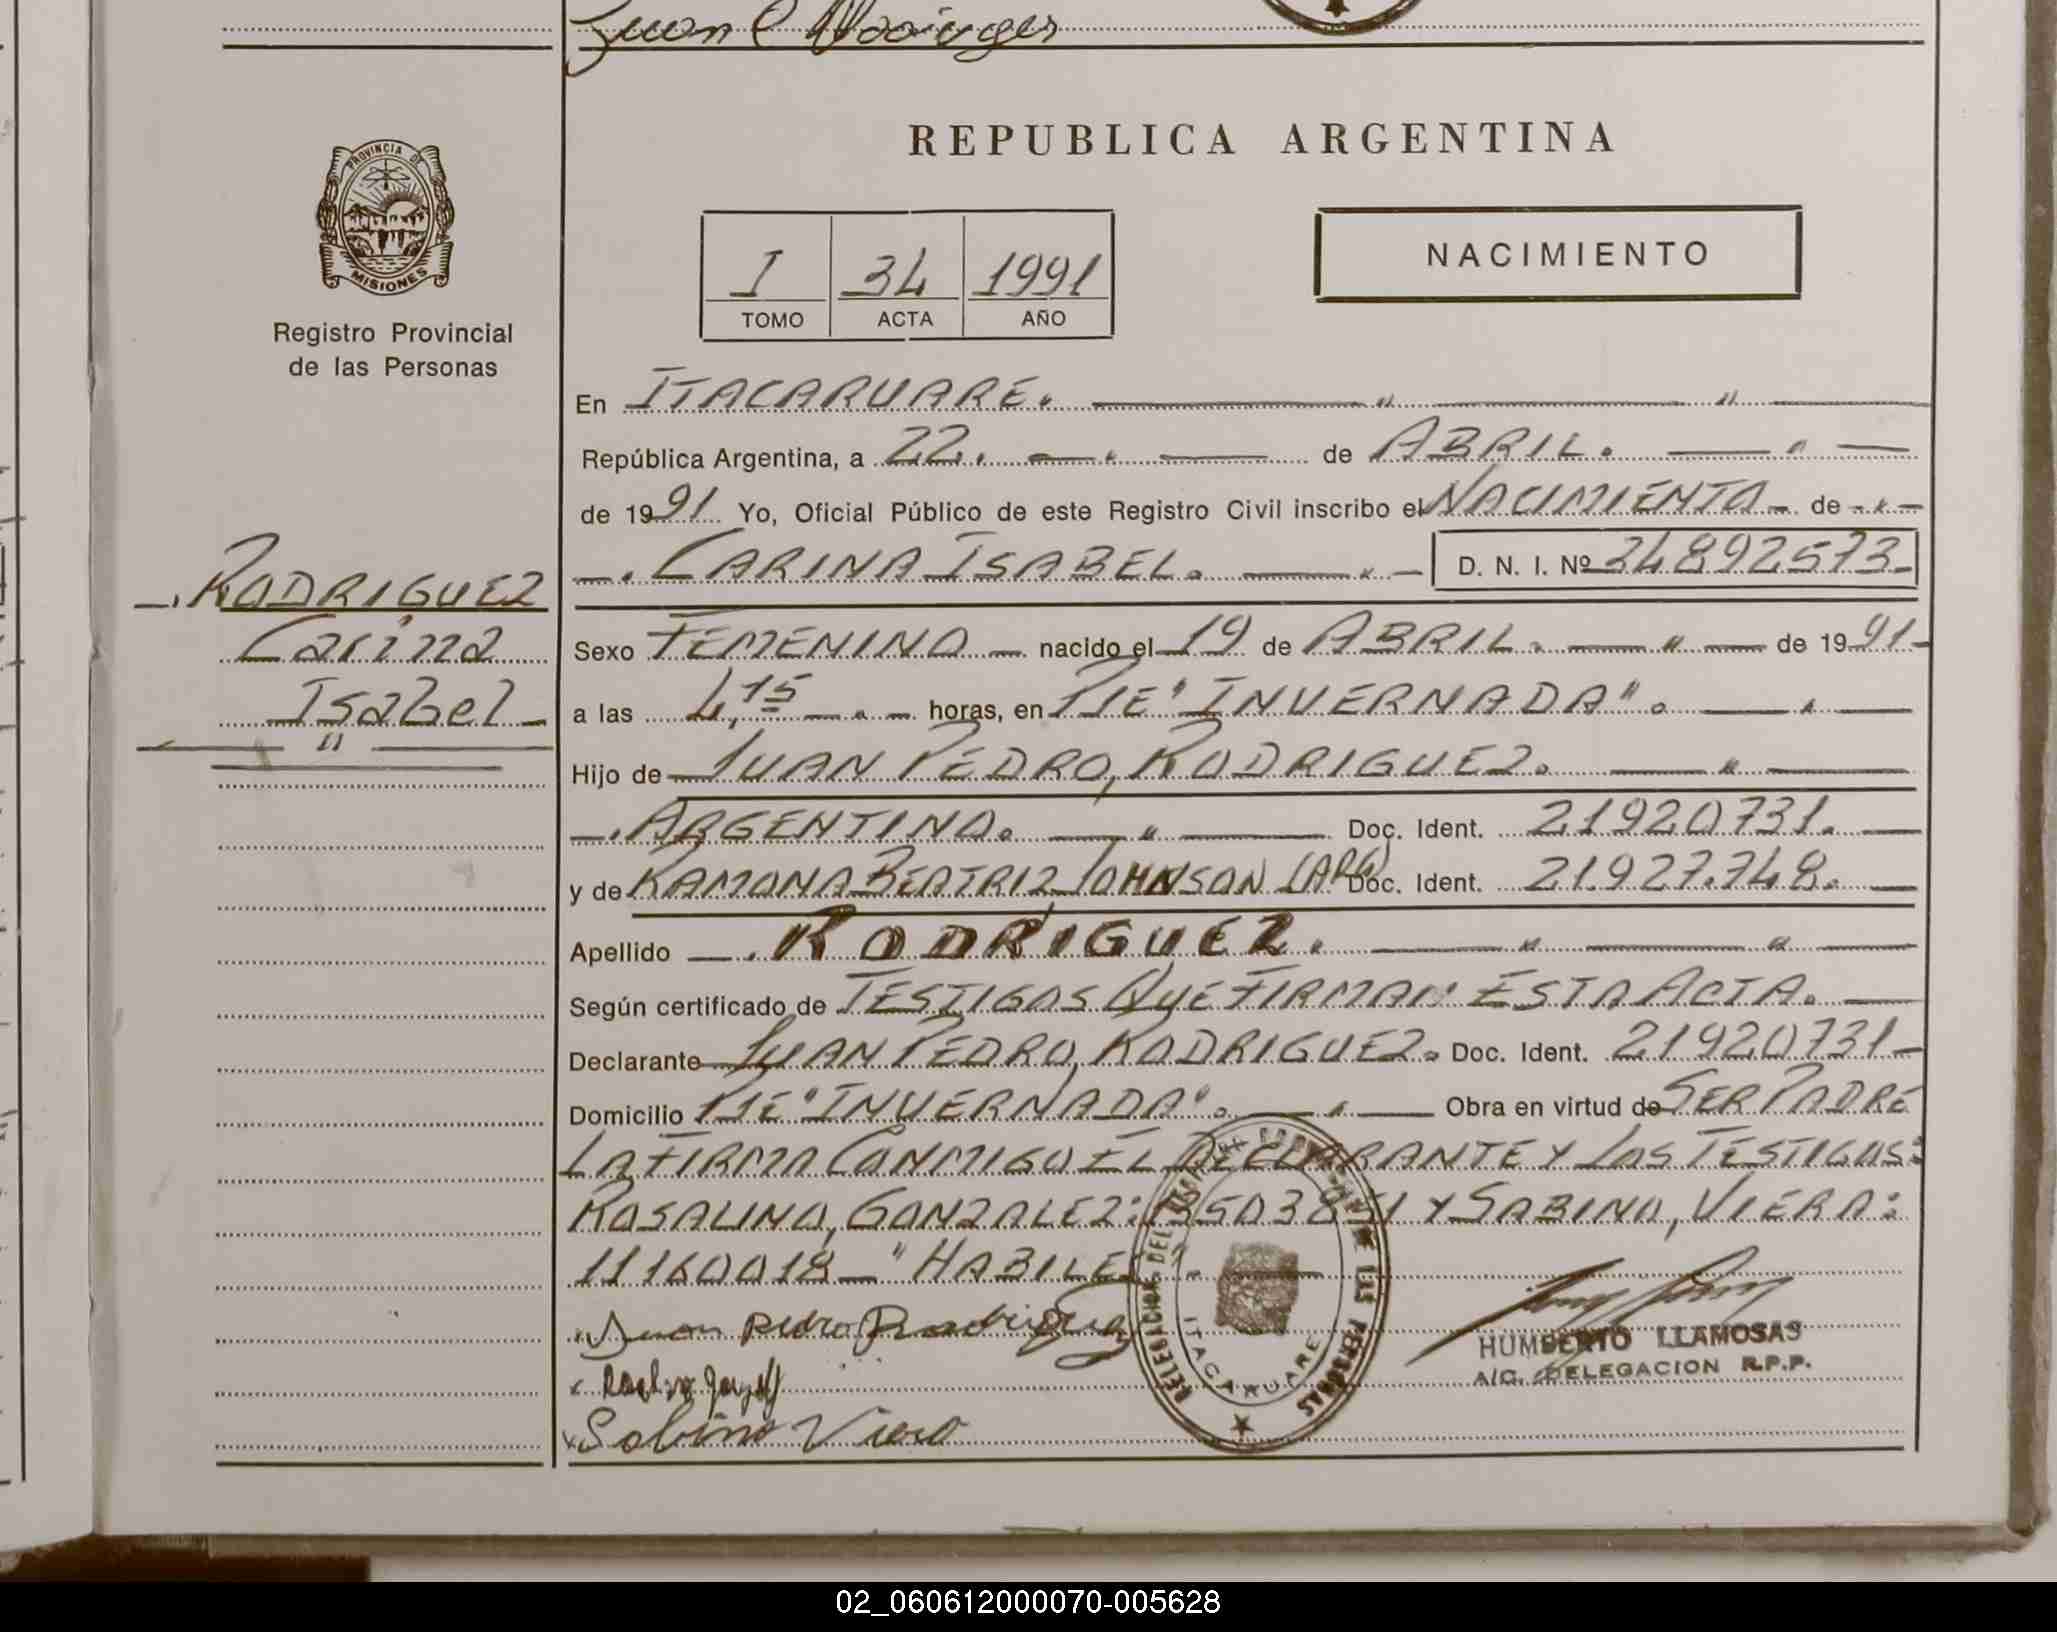 Juan C
PROVINCIA DE
MISIONES
Registro Provincial
de las Personas
RODRIGUEZ
Carina
Isabel
REPUBLICA ARGENTINA
I 34 1991
TOMO ACTA AÑO
NACIMIENTO
En ITACARUARE.
República Argentina, a 22. de ABRIL.
de 1991 Yo, Oficial Público de este Registro Civil inscribo el NACIMIENTO de
CARINA ISABEL. D. N. I. Nº 34892573
Sexo FEMENINO nacido el 19 de ABRIL. de 1991
a las 4,15 horas, en PJE "INVERNADA".
Hijo de JUAN PEDRO, RODRIGUEZ.
ARGENTINO. Doc. Ident. 21920731.
y de RAMONA BEATRIZ JOHNSON (ARG) Doc. Ident. 21.927.748.
Apellido RODRIGUEZ.
Según certificado de TESTIGOS QUE FIRMAN ESTA ACTA.
Declarante JUAN PEDRO, RODRIGUEZ. Doc. Ident. 21920731
Domicilio PJE "INVERNADA". Obra en virtud de SER PADRE
LA FIRMA CONMIGO EL DECLARANTE Y LOS TESTIGOS:
ROSALINO, GONZALEZ: 13503851 Y SABINO, VIERA:
11160018 "HABILES"
Juan Pedro Rodriguez
Sabino Viera
DELEGACION DEL REGISTRO PROVINCIAL DE LAS PERSONAS
ITACARUARE
HUMBERTO LLAMOSAS
A/C. DELEGACION R.P.P.
02_060612000070-005628